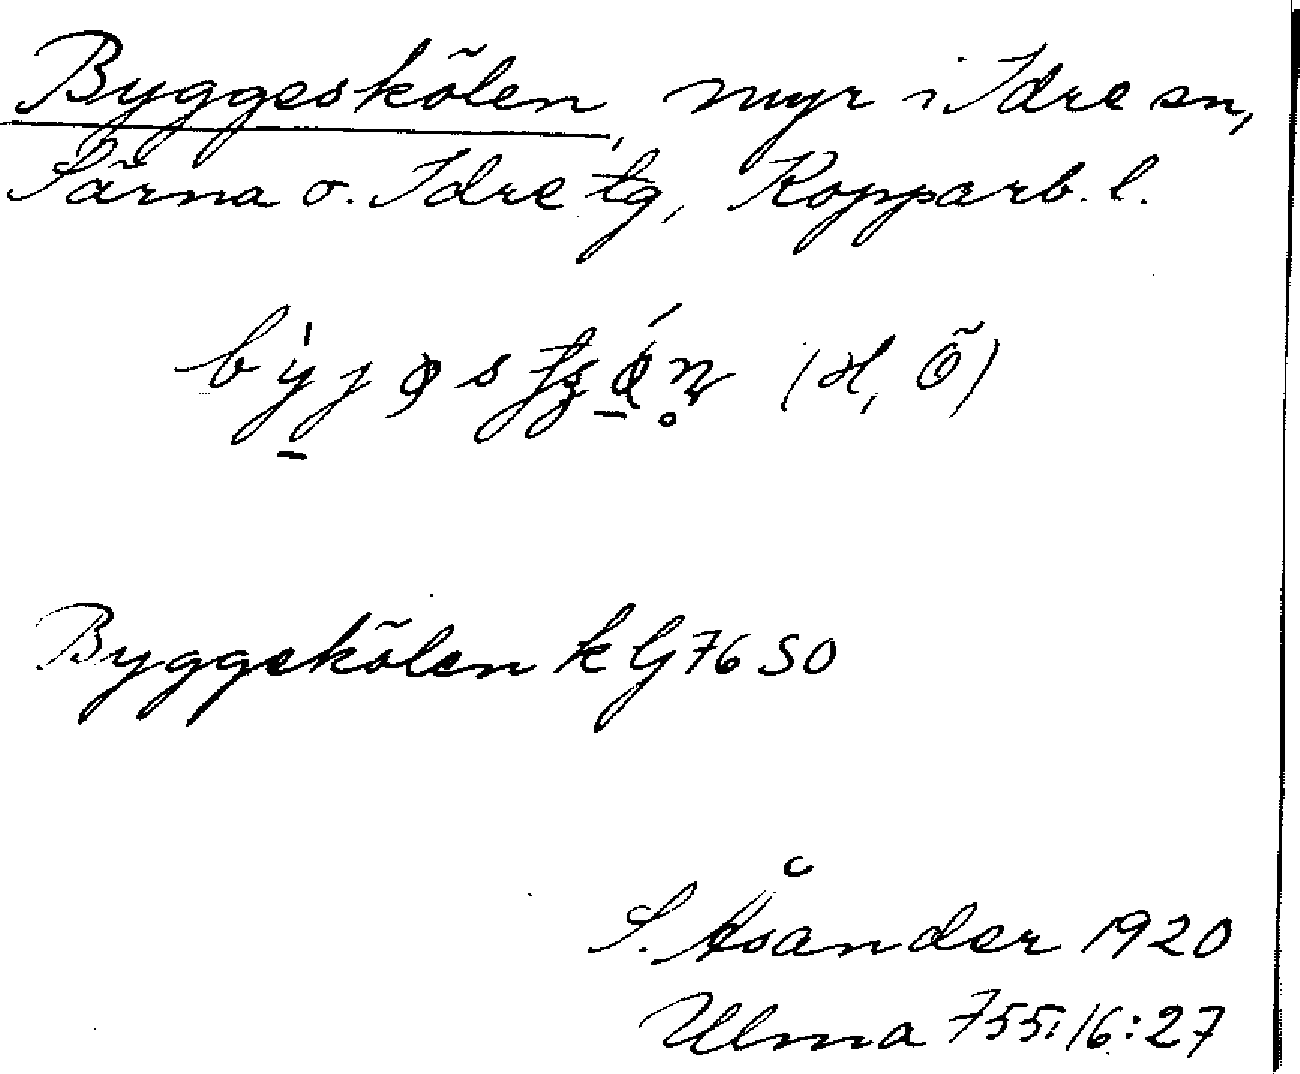 Byggeskölen, myr i Idre sn,
Särna o. Idre tg, Kopparb. l.
(H, Ö)
Byggekölen k G76 SO
S. Åsander 1920
Ulma 755:16:27